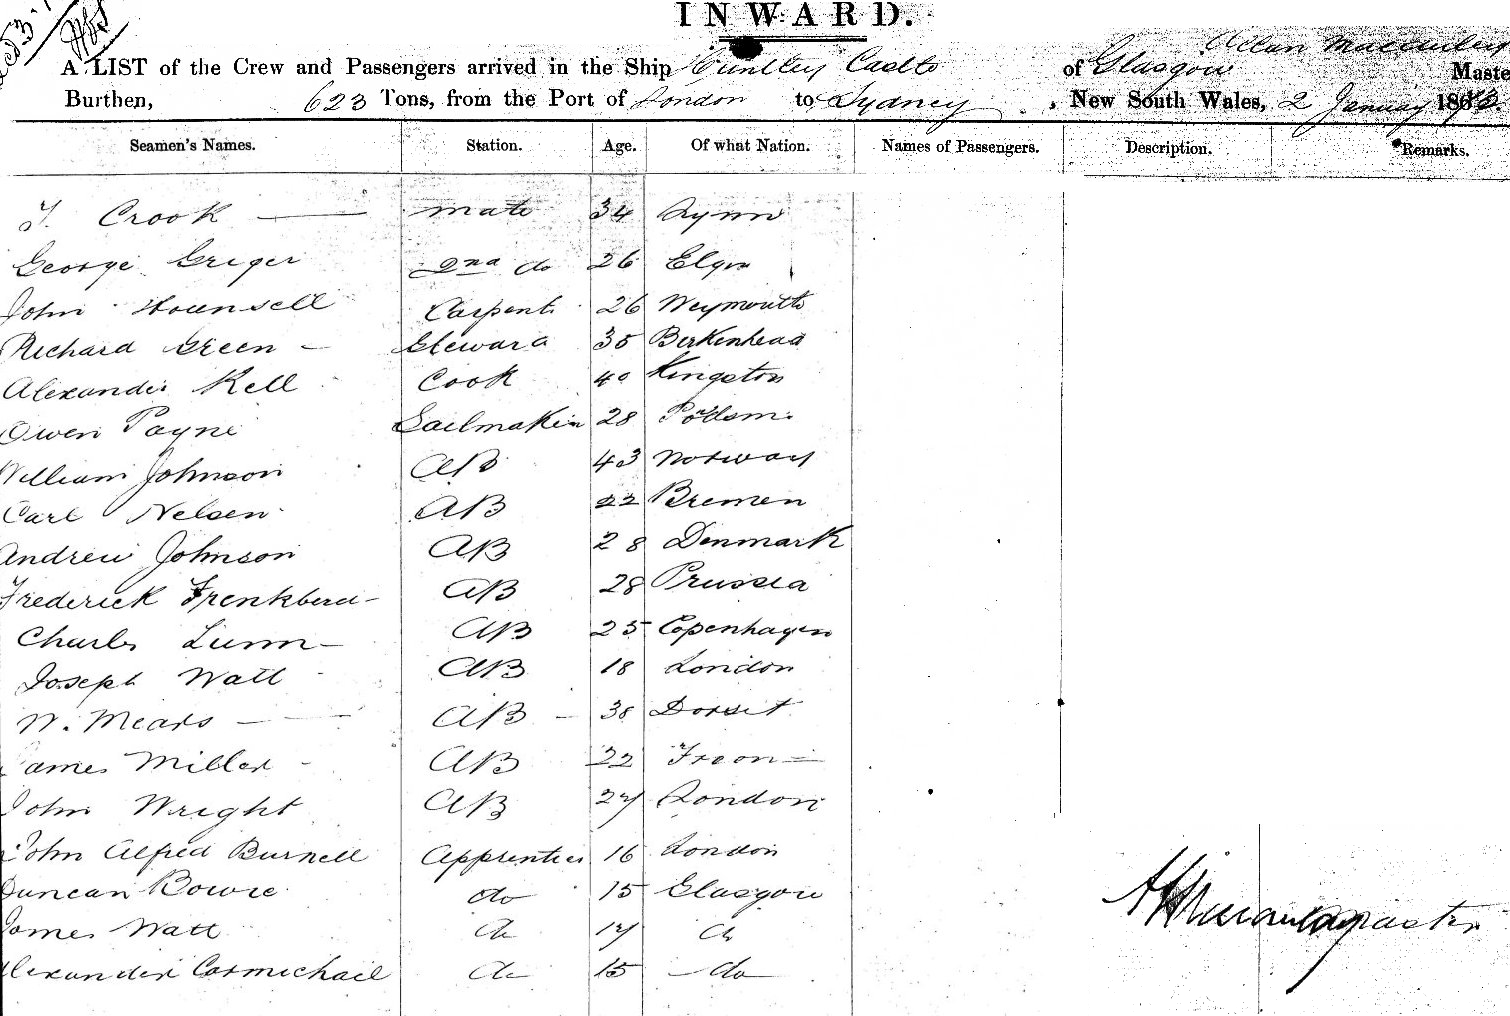 INWARD.
Allan Macaulay
A LIST of the Crew and Passengers arrived in the Ship Huntley Castle of Glasgow Maste
Burthen, 623 Tons, from the Port of London to Sydney, New South Wales, 2 January 18
Seamen's Names. Station. Age. Of what Nation. Names of Passengers. Description. Remarks.
T. Crook — mate 34 Lynn
George Greger 2nd do 26 Elgin
John Hounsell Carpent. 26 Weymouth
Richard Green — Steward 35 Birkenhead
Alexander Kell Cook 40 Kingston
Owen Payne Sailmaker 28
William Johnson AB 43 Norway
Carl Nelsen AB 22 Bremen
Andrew Johnson AB 28 Denmark
Frederick AB 28 Prussia
Charles Lunn — AB 25 Copenhagen
Joseph Watt AB 18 London
W. Mears — AB — 38 Dorset
James Miller - AB 22
John Wright AB 27 London
John Alfred Burnell Apprentice 16 London
Duncan Bowie do 15 Glasgow
James Watt do 17 do
Alexander Carmichael do 15 do
master